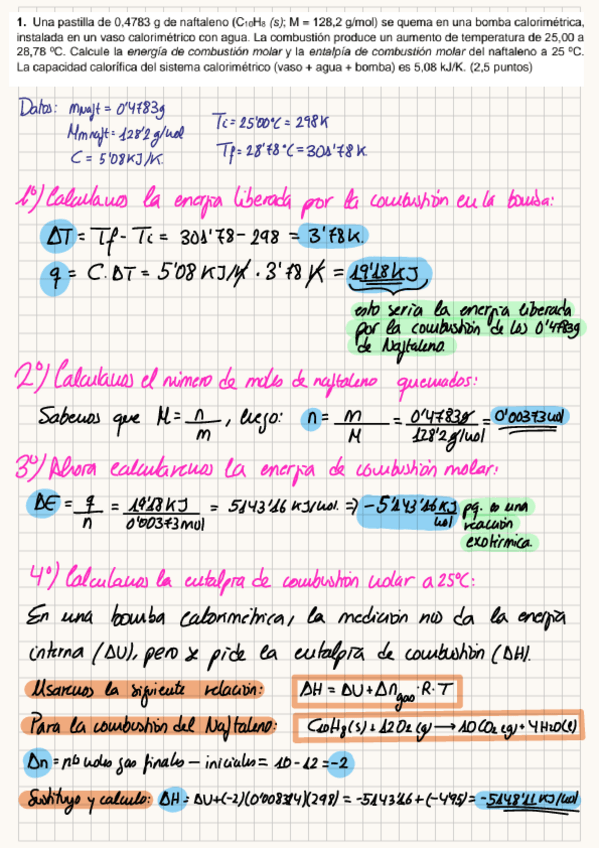 1. Una pastilla de 0,4783 g de naftaleno (C₁₀H₈ (s); M = 128,2 g/mol) se quema en una bomba calorimétrica,
instalada en un vaso calorimétrico con agua. La combustión produce un aumento de temperatura de 25,00 a
28,78 ºC. Calcule la energía de combustión molar y la entalpía de combustión molar del naftaleno a 25 ºC.
La capacidad calorífica del sistema calorimétrico (vaso + agua + bomba) es 5,08 kJ/K. (2,5 puntos)
Datos: mnaft = 0'4783g
Mmnaft = 128'2 g/mol
C = 5'08KJ/K.
Ti = 25'00ºC = 298K
Tf = 28'78ºC = 301'78K.
1º) Calculamos la energía liberada por la combustión en la bomba:
ΔT = Tf - Ti = 301'78 - 298 = 3'78K.
q = C.ΔT = 5'08 KJ/K · 3'78 K = 19'18KJ
esto sería la energía liberada
por la combustión de los 0'4783g
de Naftaleno.
2º) Calculamos el número de moles de naftaleno quemados:
Sabemos que M = n/m, luego: n = m/M = 0'4783g/128'2g/mol = 0'00373mol
3º) Ahora calcularemos la energía de combustión molar:
ΔE = q/n = 19'18KJ/0'00373mol = 5143'16 KJ/mol. ⇒ -5143'16 KJ/mol pq. es una
reacción
exotérmica.
4º) Calculamos la entalpía de combustión molar a 25ºC:
En una bomba calorimétrica, la medición nos da la energía
interna (ΔU), pero se pide la entalpía de combustión (ΔH).
Usaremos la siguiente relación: ΔH = ΔU + Δngas·R·T
Para la combustión del Naftaleno: C10H8(s) + 12O2(g) → 10CO2(g) + 4H2O(l)
Δn = nb moles gas finales - iniciales = 10 - 12 = -2
Sustituyo y calculo: ΔH = ΔU + (-2)(0'008314)(298) = -5143'16 + (-4'95) = -5148'11 KJ/mol